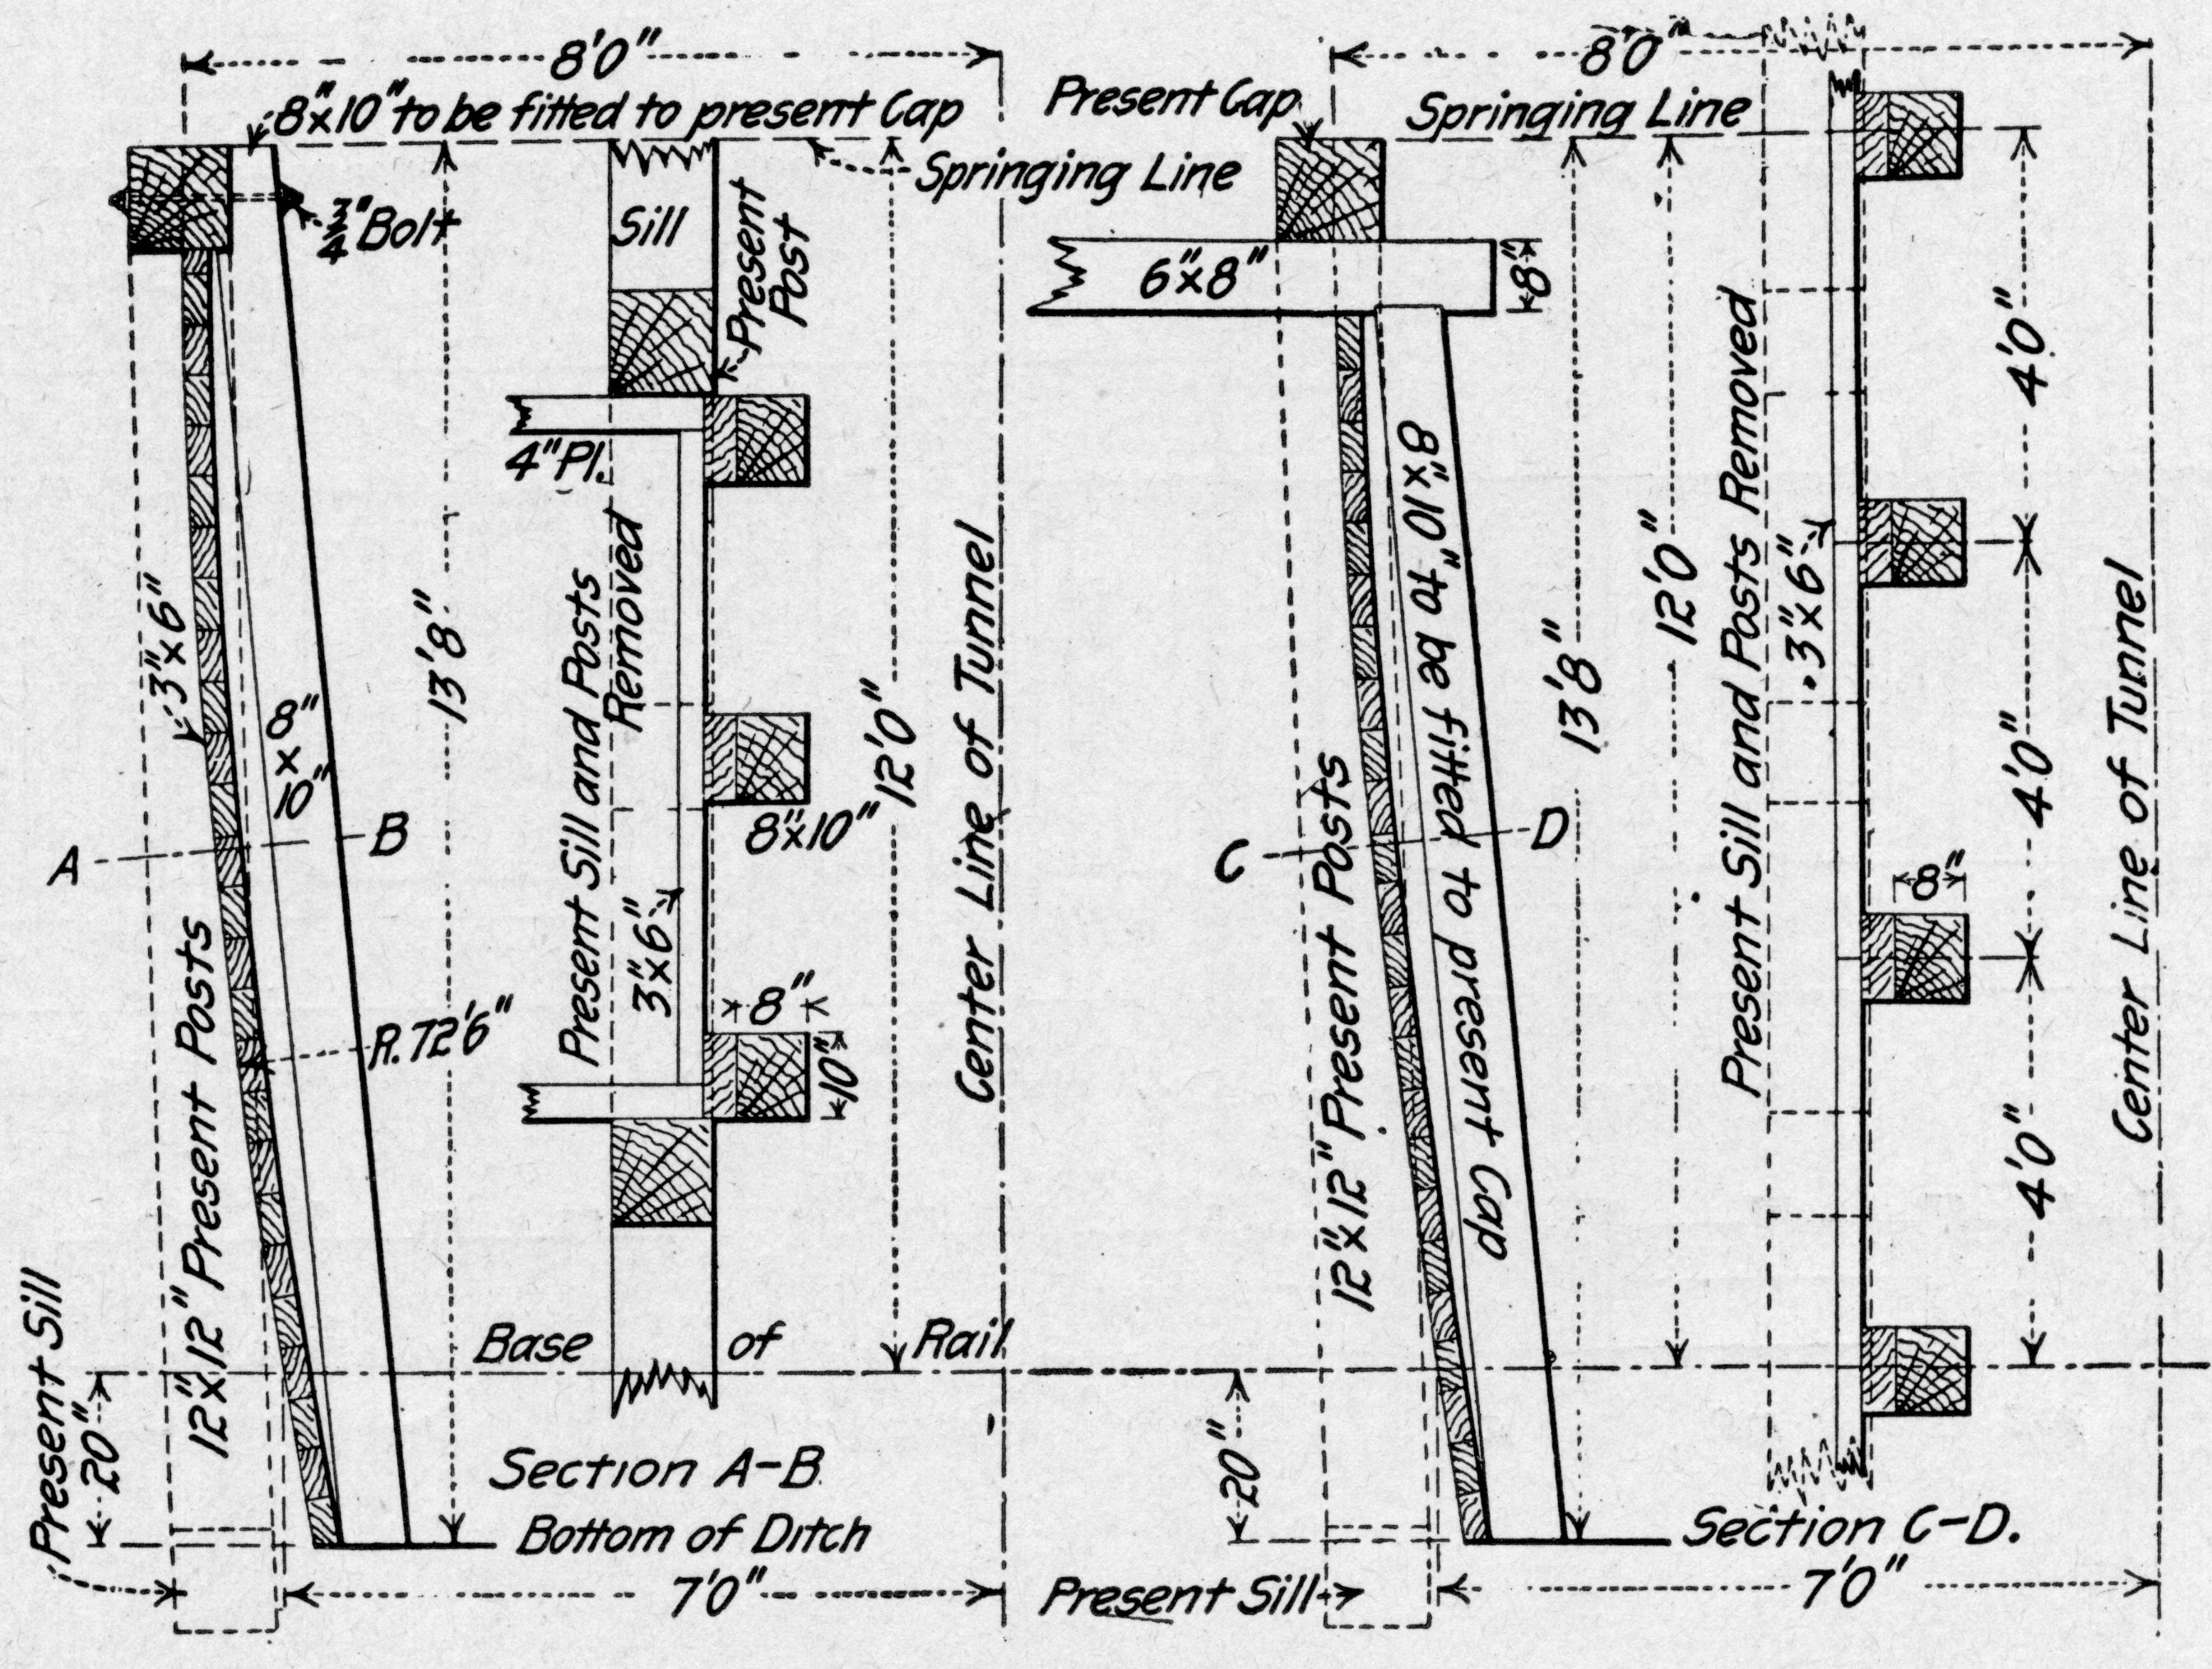 8'0"
8"x10" to be fitted to present Cap
Springing Line
3/4" Bolt
Sill
Present
Post
4" Pl.
3"x6"
8"
x
10"
13'8"
Present Sill and Posts
Removed
12'0"
Center Line of Tunnel
A
B
8"x10"
3"x6"
12"x12" Present Posts
R.72'6"
8"
10"
Present Sill
20"
Base of Rail
Section A-B.
Bottom of Ditch
7'0"
8'0"
Present Cap
Springing Line
6"x8"
8"
8"x10" to be fitted to present Cap
13'8"
12'0"
Present Sill and Posts Removed
3"x6"
4'0"
4'0"
4'0"
8"
Center Line of Tunnel
C
D
12"x12" Present Posts
20"
Present Sill
Section C-D.
7'0"